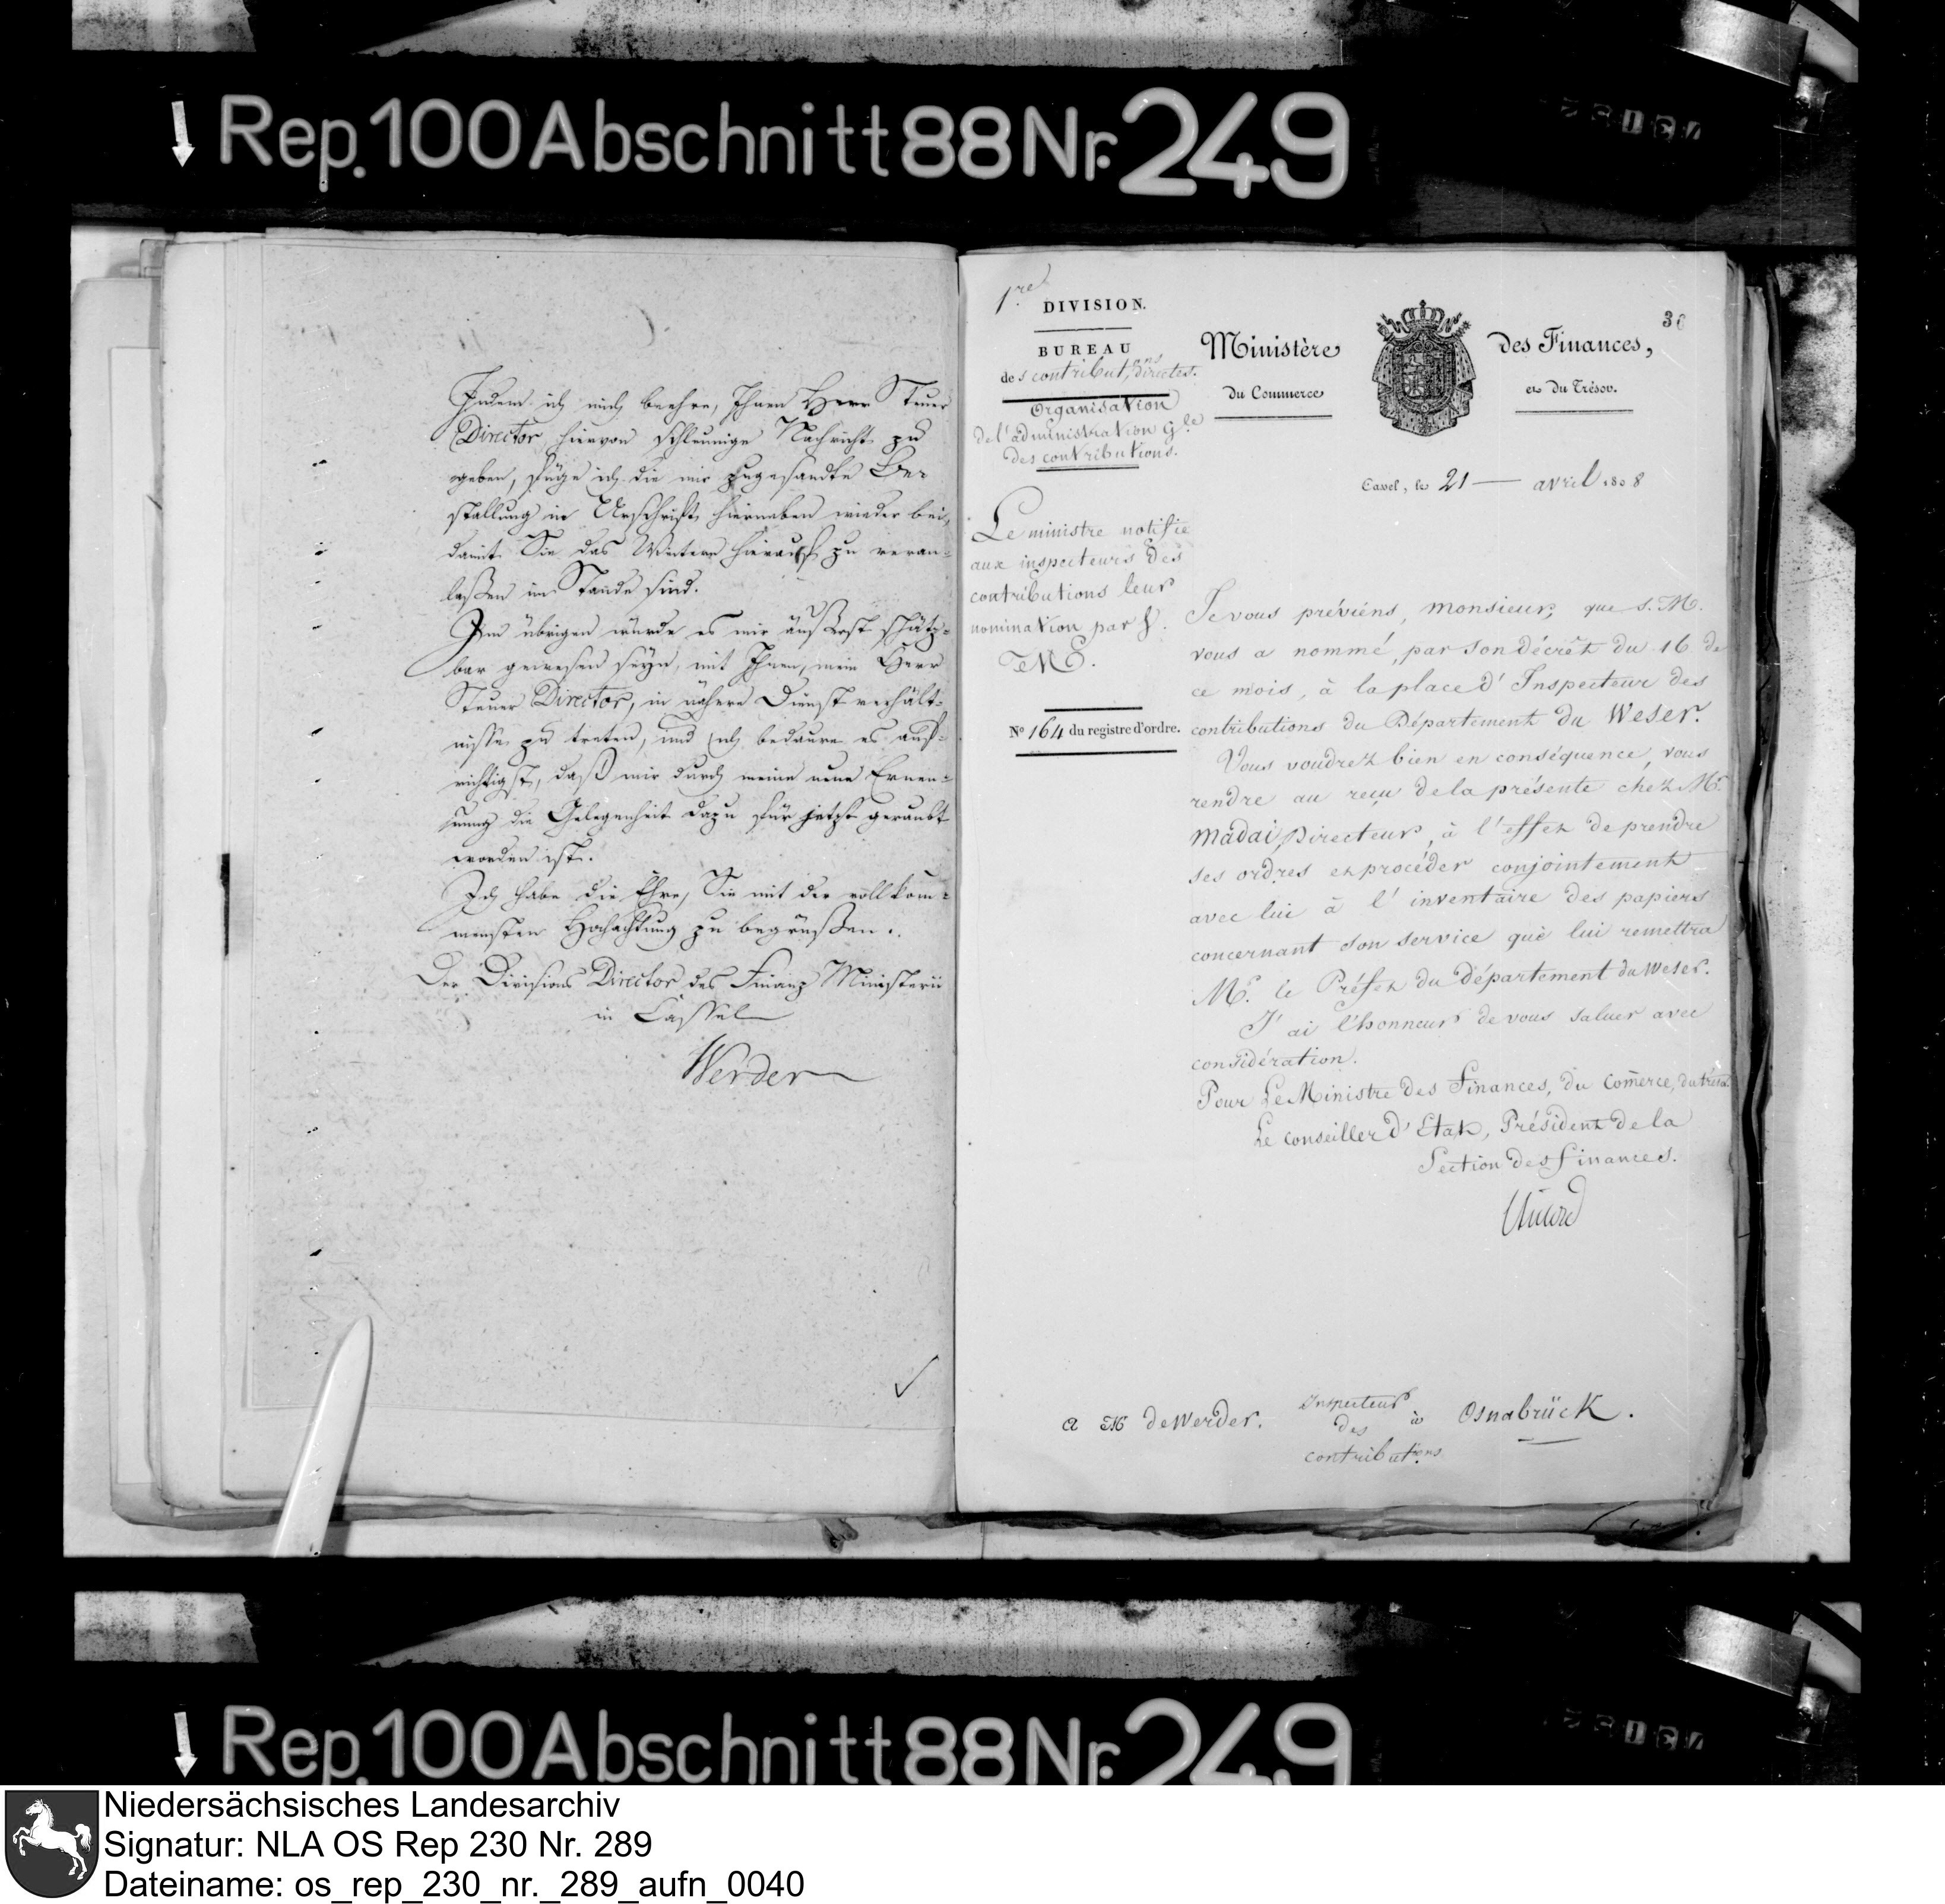 Rep. 100 Abschnitt 88 Nr. 249
Indem ich mich beehre, Ihnen Herr Steuer
Director hiervon schleunige Nachricht zu
geben, füge ich die mir zugesandte Be-
stallung in Urschrift hierneben wieder bei,
damit Sie das Weitere hierauf zu veran-
laßen im Stande sind.
Im übrigen würde es mir äußerst schätz-
bar gewesen seyn, mit Ihnen, mein Herr
Steuer Director, in nähere Dienstverhält-
nisse zu treten, und ich bedaure es auf-
richtigst, daß mir durch meine neue Ernen-
nung die Gelegenheit dazu für jetzt geraubt
worden ist.
Ich habe die Ehre, Sie mit der vollkom-
mensten Hochachtung zu begrüßen.
Der Divisions Director des Finanz Ministerii
in Cassel
Werder
1.re DIVISION.
BUREAU
des contribut.ons directes.
Organisation
de l'administration g.le
des contributions.
Le ministre notifie
aux inspecteurs des
contributions leur
nomination par S.
M.
N.o 164 du registre d'ordre.
30
Ministère des Finances,
du Commerce et du Trésor.
Cassel, le 21 — avril 1808
Je vous préviens, monsieur, que S. M.
vous a nommé, par son décrèt du 16 de
ce mois, à la place d'Inspecteur des
contributions du Département du Weser.
Vous voudrez bien en conséquence, vous
rendre au reçu de la présente chez Mr.
Madai Directeur, à l'effet de prendre
ses ordres et procéder conjointement
avec lui à l'inventaire des papiers
concernant son service que lui remettra
Mr. le Préfet du département du Weser.
J'ai l'honneur de vous saluer avec
considération.
Pour Le Ministre des Finances, du Com̃erce, du trésor
Le conseiller d'Etat, Président de la
Section des finances.
A M de Werder. Inspecteur des contributions à Osnabrück.
Rep. 100 Abschnitt 88 Nr. 249
Niedersächsisches Landesarchiv
Signatur: NLA OS Rep 230 Nr. 289
Dateiname: os_rep_230_nr._289_aufn_0040